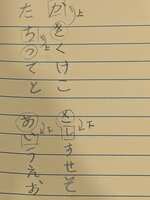 かきくけこ
上
たちつてと
上
さしすせそ
上下
あいうえお
上下